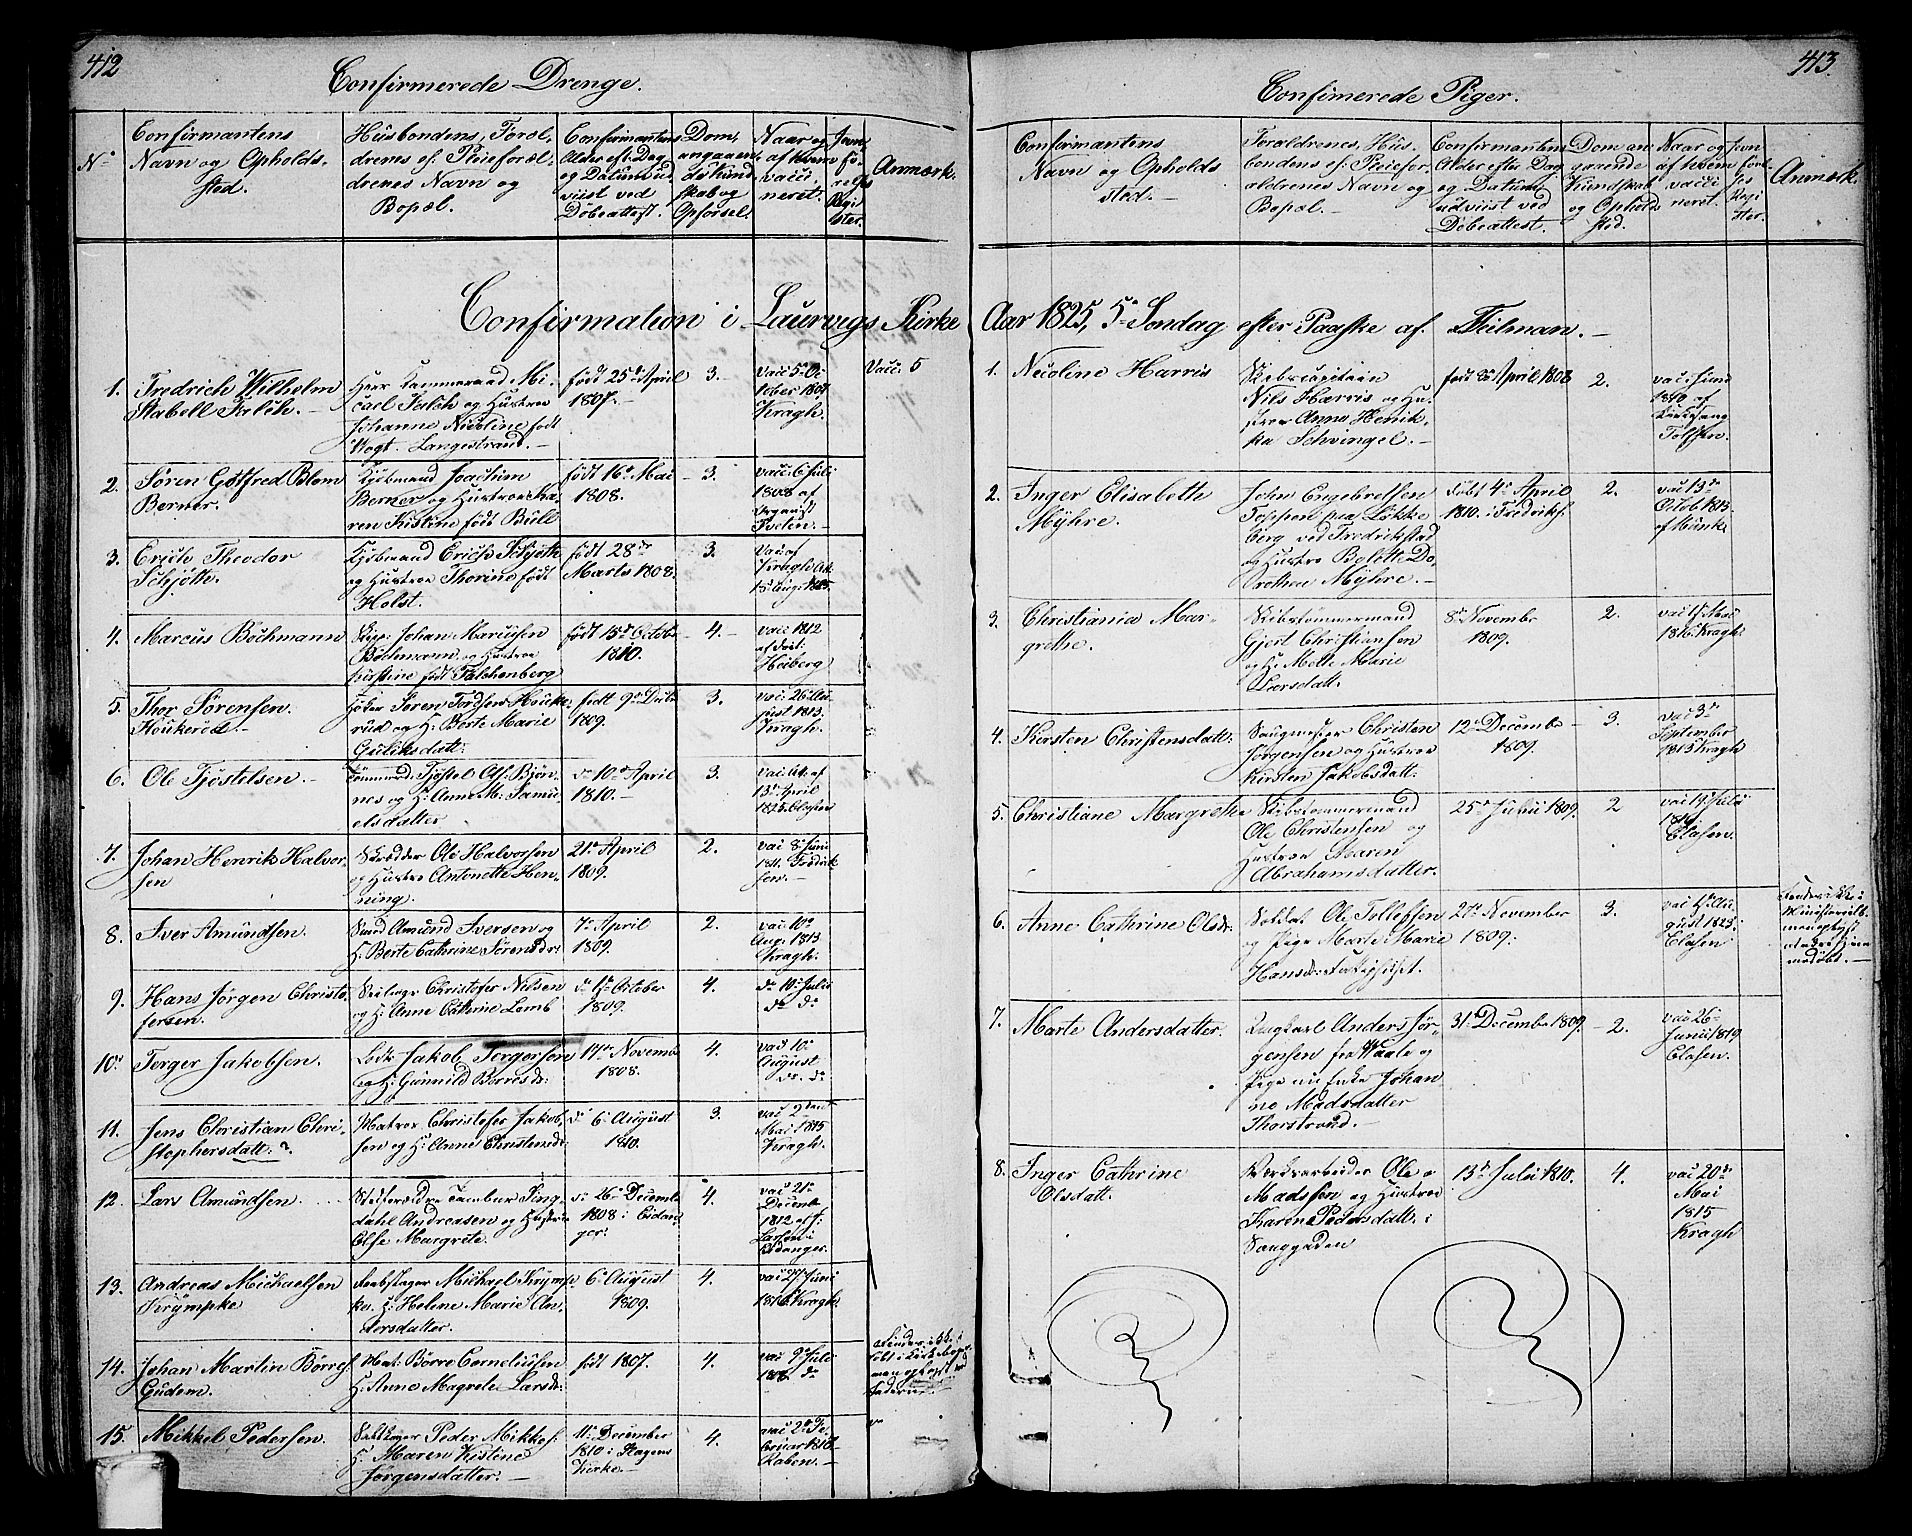 412
Confirmerede Drenge.
No
Confirmantens
Navn og Opholds,
sted.
Husbondens, Foræl,
drenes ef: Pleieforæl,
drenes Navn og
Bopæl.
Confirmantens
Alder eft: Dag
og Datum ud
viist ved
Døbeattest.
Dom,
angaaen,
de Kund
skab og
Opførsel.
Naar og
af hvem
vacci,
neret.
Jevn
fø,
relses
Regi
ster.
Anmærk.
Confirmation i Laurvigs Kirke
1.
Fredrich Wilhelm
Stabell Falch.
Herr Kammerraad Mi,
cael Falch og Hustroe
Johanne Nicoline født
Vogt. Langestrand.
født 25de April
1807.
3.
Vacc: 5 Oc
tober 1807
Kragh.
Vacc: 5
2.
Søren Gotfred Blom
Berner.
Kjøbmand Joachum
Berner og Hustroe Ka,
ren Kistine født Bull
født 16de Mai
1808.
3.
vacc: 6 Juli
1808 af
Organist
Ivelen.
3.
Erich Theodor
Schjøtte.
Kjøbmand Erich Schjøtte
og Hustroe Thorine født
Holst.
født 28de
Marts 1808.
3.
Vac: af
Kragh
4.
Marcus Bochmann
Skip: Johan Marcusen
Bochmann og Hustroe
Kirstine født Falchenberg
født 15de Octobr
1810.
4.
vacc: 1812
Høiberg
5.
Thor Sørensen.
Houkerød.
Søren Tordsen Houke,
rud og H: Berte Marie
Guliksdatt:
født 9de Decbr
1809.
3.
vac: 26 Au
gust 1813.
Kragh.
6.
Ole Tjøstelsen.
Tømmermd Tjøstel Ols: Bjøn,
nes og H: Anne M: Samu
elsdatter
do 10de April
1810.
3.
13de April
1825 Clasen
7.
Johan Henrik Halvor
sen
Skrædder Ole Halvorsen
og Hustroe Antonette Hen,
ning.
21de April
1809.
2.
vac: 8de Juni
1811. Fredrik
sen.
8.
Iver Amundsen.
Amund Iversen og
H: Berte Cathrine Sørensdr:
7de April
1809.
2.
vac: 10de
Aug: 1813
Kragh.
9.
Hans Jørgen Christo
fersen.
Christofer Nilsen
og H: Anne Cathrine Lamb
do 17de October
1809.
4.
do 10de Juli
do do
10.
Torger Jakobsen
Lods Jakob Torgersen
og H: Gunnild Borresdr:
17de Novembr
1808.
4.
vac: 10de
August
do. do
11.
Jens Christian Chri,
stophersdatt: ?
Matros Christofer Jakob,
sen og H: Anne Christensdr:
do 6de August
1810.
3.
vac: 2den
Mai 1815
Kragh:
12.
Lars Amundsen
Stedforældre Tambur Ing,
dahl Andreasen og Hustroe
Else Margrete.
do 26de Decembr
1808 i Eidan,
ger:
4.
vac: 21de
Decembr
1812 af J:
Larsen i
Eidanger.
13.
Andreas Michaelsen
Krympke
Rebslager Michael Krymp,
ke. H: Helene Marie An,
dersdatter.
6de August
1809.
4.
vac: 27 Juni
1816 Kragh.
14.
Johan Martin Børres
Gudem.
Mat: Børre Corneliussen
H: Anne Magrete Larsdr:
født 1807.
4.
vac: 9de Juli
do
Findes ikke
født i Kirkebogen
men opgivet ved
15.
Mikkel Pedersen.
Peder Mikkels:
H: Maren Kistine
Jørgensdatter.
11de December
1810 i Skagens
Kirke.
4.
vac: 2de Fe
bruar 1813
Raben.
413.
Confirmerede Piger.
Confirmantens
Navn og Opholds
sted.
Forældrenes, Hus,
bondens ef: Pleiefor,
ældrenes Navn og
Bopæl.
Confirmantens
Alder efter Dag
og Datum
udviist ved
Døbeattest.
Dom an
gaaende
Kundskab
og Ophold
sted.
Naar og
af hvem
vacci
neret.
Jevn
førel
ses
Regi
ster.
Anmærk.
Aar 1825, 5te Søndag efter Paaske af Teilman.
1.
Nicoline Harris
Skibscapitain
Nils Harris og Hu,
stroe Anna Henrik,
ka Schvingel.
født 8de April 1808
2.
vac: Juni
1810 af
Kirkesang
Tolfsen.
2.
Inger Elisabeth
Myhre.
John Engebretsen
Toppen paa Løkke
berg ved Fredrikstad
og Hustroe Bolette Do,
rothea Myhre.
født 4de April
1810. i Fredriks.
2.
vac: 13de
Octob: 1813.
af Munk
3.
Christiania Mar,
grethe.
Skibstømmermand
Gjert Christiansen
og H: Mette Marie
Larsdatt.
8de Novembr
1809.
2.
1816 Kragh.
4.
Kirsten Christensdatt:
Saugmester Christen
Jørgensen og Hustroe
Kirsten Jakobsdatt:
12te Decembr
1809.
3.
vac: 3de
September
1813 Kragh
5.
Christiane Margrethe
Skibstømmermand
Ole Christensen og
Hustroe Maren
Abrahamsdatter.
25de Juni 1809.
2
vac: 19de Juli
1819.
Clasen.
6.
Anne Cathrine Olsdr:
Soldat Ole Tollefsen
og Pige Marte Marie
Hansdr:
27de November
1809.
3.
vac: 4de Au
gust 1823.
Clasen
Findes ikke i
Ministerialb:
men oplyst
7.
Marte Andersdatter.
Ungkarl Anders Jør,
gensen fra Vaale og
Pige nu Enke Johan
ne Madsdatter
Thorstrand.
31te December 1809.
2.
vac: 26
Juni 1819
Clasen.
8.
Inger Cathrine
Olsdatt.
Værksarbeider Ole
Madssen og Hustroe
Karen Pedersdatt: i
Sauggaden
13de Juli 1810.
4.
vac: 20de
Mai
1815
Kragh